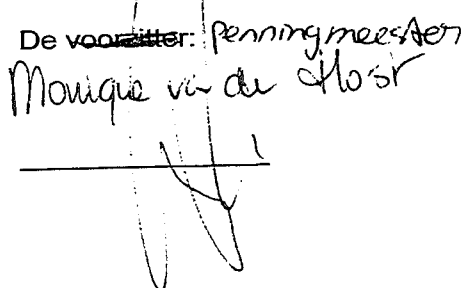 De voorzitter: penningmeester
Monique v d Horst